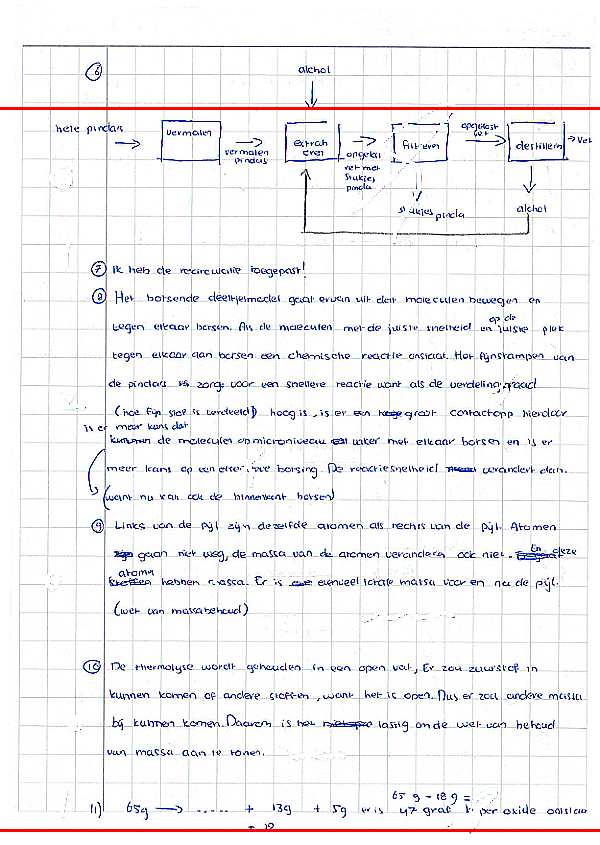 6
alchol
hele pinda's
vermalen
vermalen pindas
extraheren
opgelost vet met stukjes pinda
filtreren
stukjes pinda
opgelost vet
destilleren
→ Vet
alchol
7 Ik heb de recirculatie toegepast!
8 Het botsende deeltjesmodel gaat ervan uit dat moleculen bewegen en
tegen elkaar botsen. Als de moleculen met de juiste snelheid en op de juiste plek
tegen elkaar aan botsen een chemische reactie ontstaat. Het fijnstampen van
de pinda's zorgt voor een snellere reactie want als de verdelingsgraad
(hoe fijn stof is verdeeld) hoog is, is er een groot contactopp hierdoor
is er meer kans dat
de moleculen op microniveau vaker met elkaar botsen en is er
meer kans op een effectieve botsing. De reactiesnelheid verandert dan.
(want nu kan ook de binnenkant botsen)
9 Links van de pijl zijn dezelfde atomen als rechts van de pijl. Atomen
gaan niet weg, de massa van de atomen veranderen ook niet. En deze
atomen hebben massa. Er is evenveel totale massa voor en na de pijl.
(wet van massabehoud)
10 De thermolyse wordt gehouden in een open vat, Er zou zuurstof in
kunnen komen of andere stoffen, want het is open. Dus er zou andere massa
bij kunnen komen. Daarom is het lastig om de wet van behoud
van massa aan te tonen.
65 g - 18 g =
11) 65g → ...... + 13g + 5g er is 47 gram peroxide ontstaan